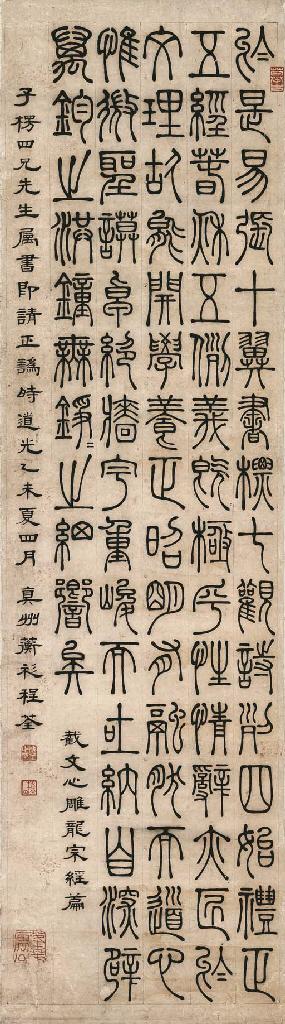 於是易張十翼書標七觀詩列四始禮正
五經萅秋五例義既極乎性情辭亦匠於
文理故能開學養正昭明有融然而道心
惟微聖謨卓絕牆宇重峻而吐納自深譬
萬鈞之洪鐘無錚=之細響矣
截文心雕龍宗經篇
子楞四兄先生屬書即請正譌時道光乙未夏四月 真州蘅衫程荃